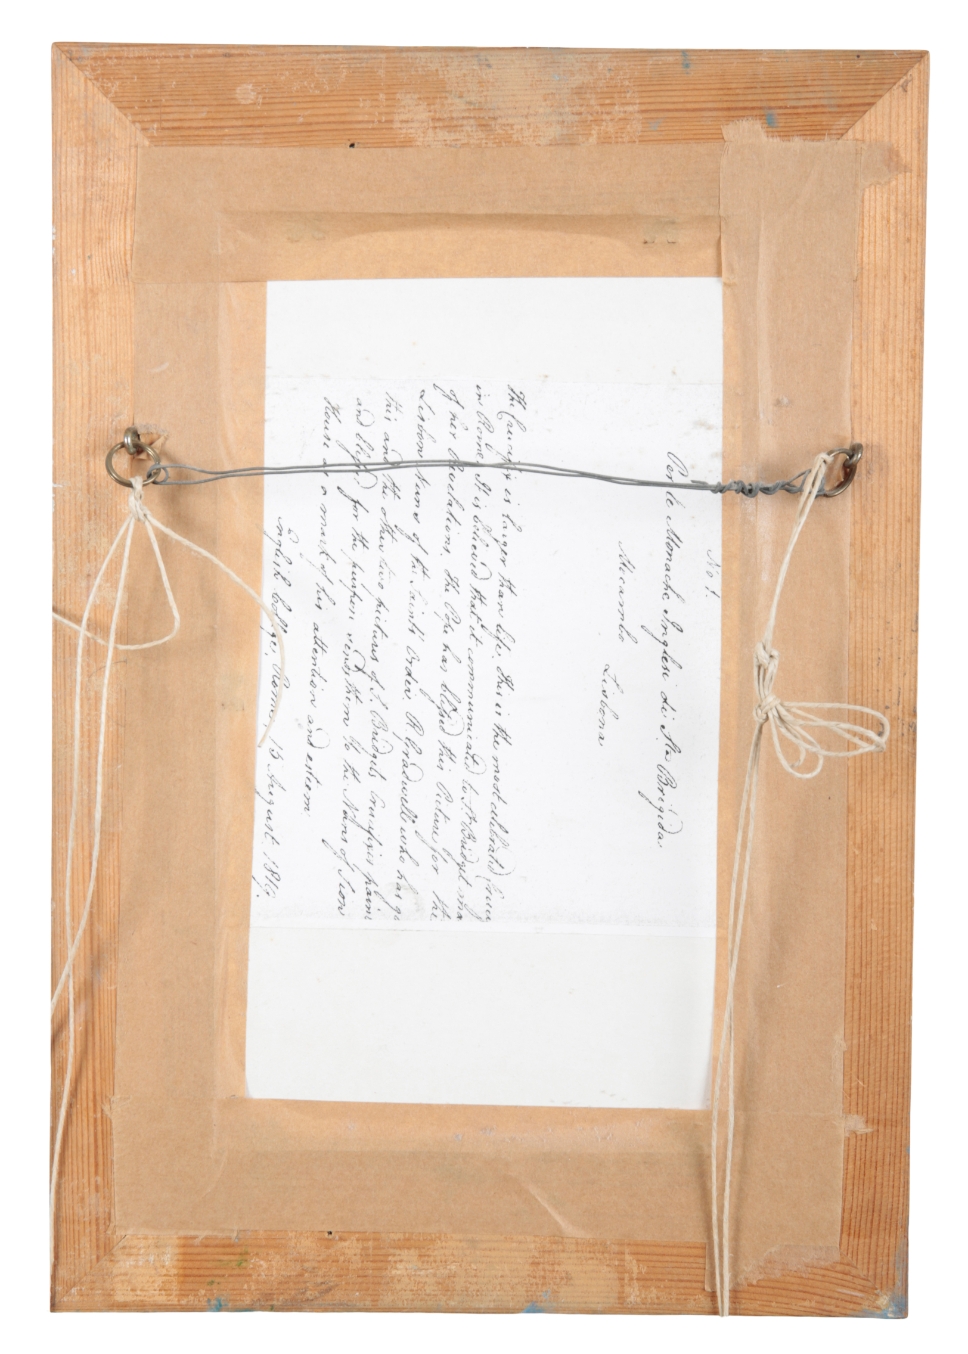 No 1.
Per le Monache Inglesi di Sta Brigida.
Lisbona
The Crucifix is larger than life. This is the most celebrated
in Rome. It is believed that it communicated to St Bridget
of her Revelations. The Pope has blessed this Picture for the
Lisbon Nuns of the Saint's Order. R. Gradwell who has
this and the other two pictures of S. Bridget's Crucifixes
and blessed for the purpose sends them to the Nuns of Sion
House as a mark of his attention and esteem.
English College, Rome, 15 August